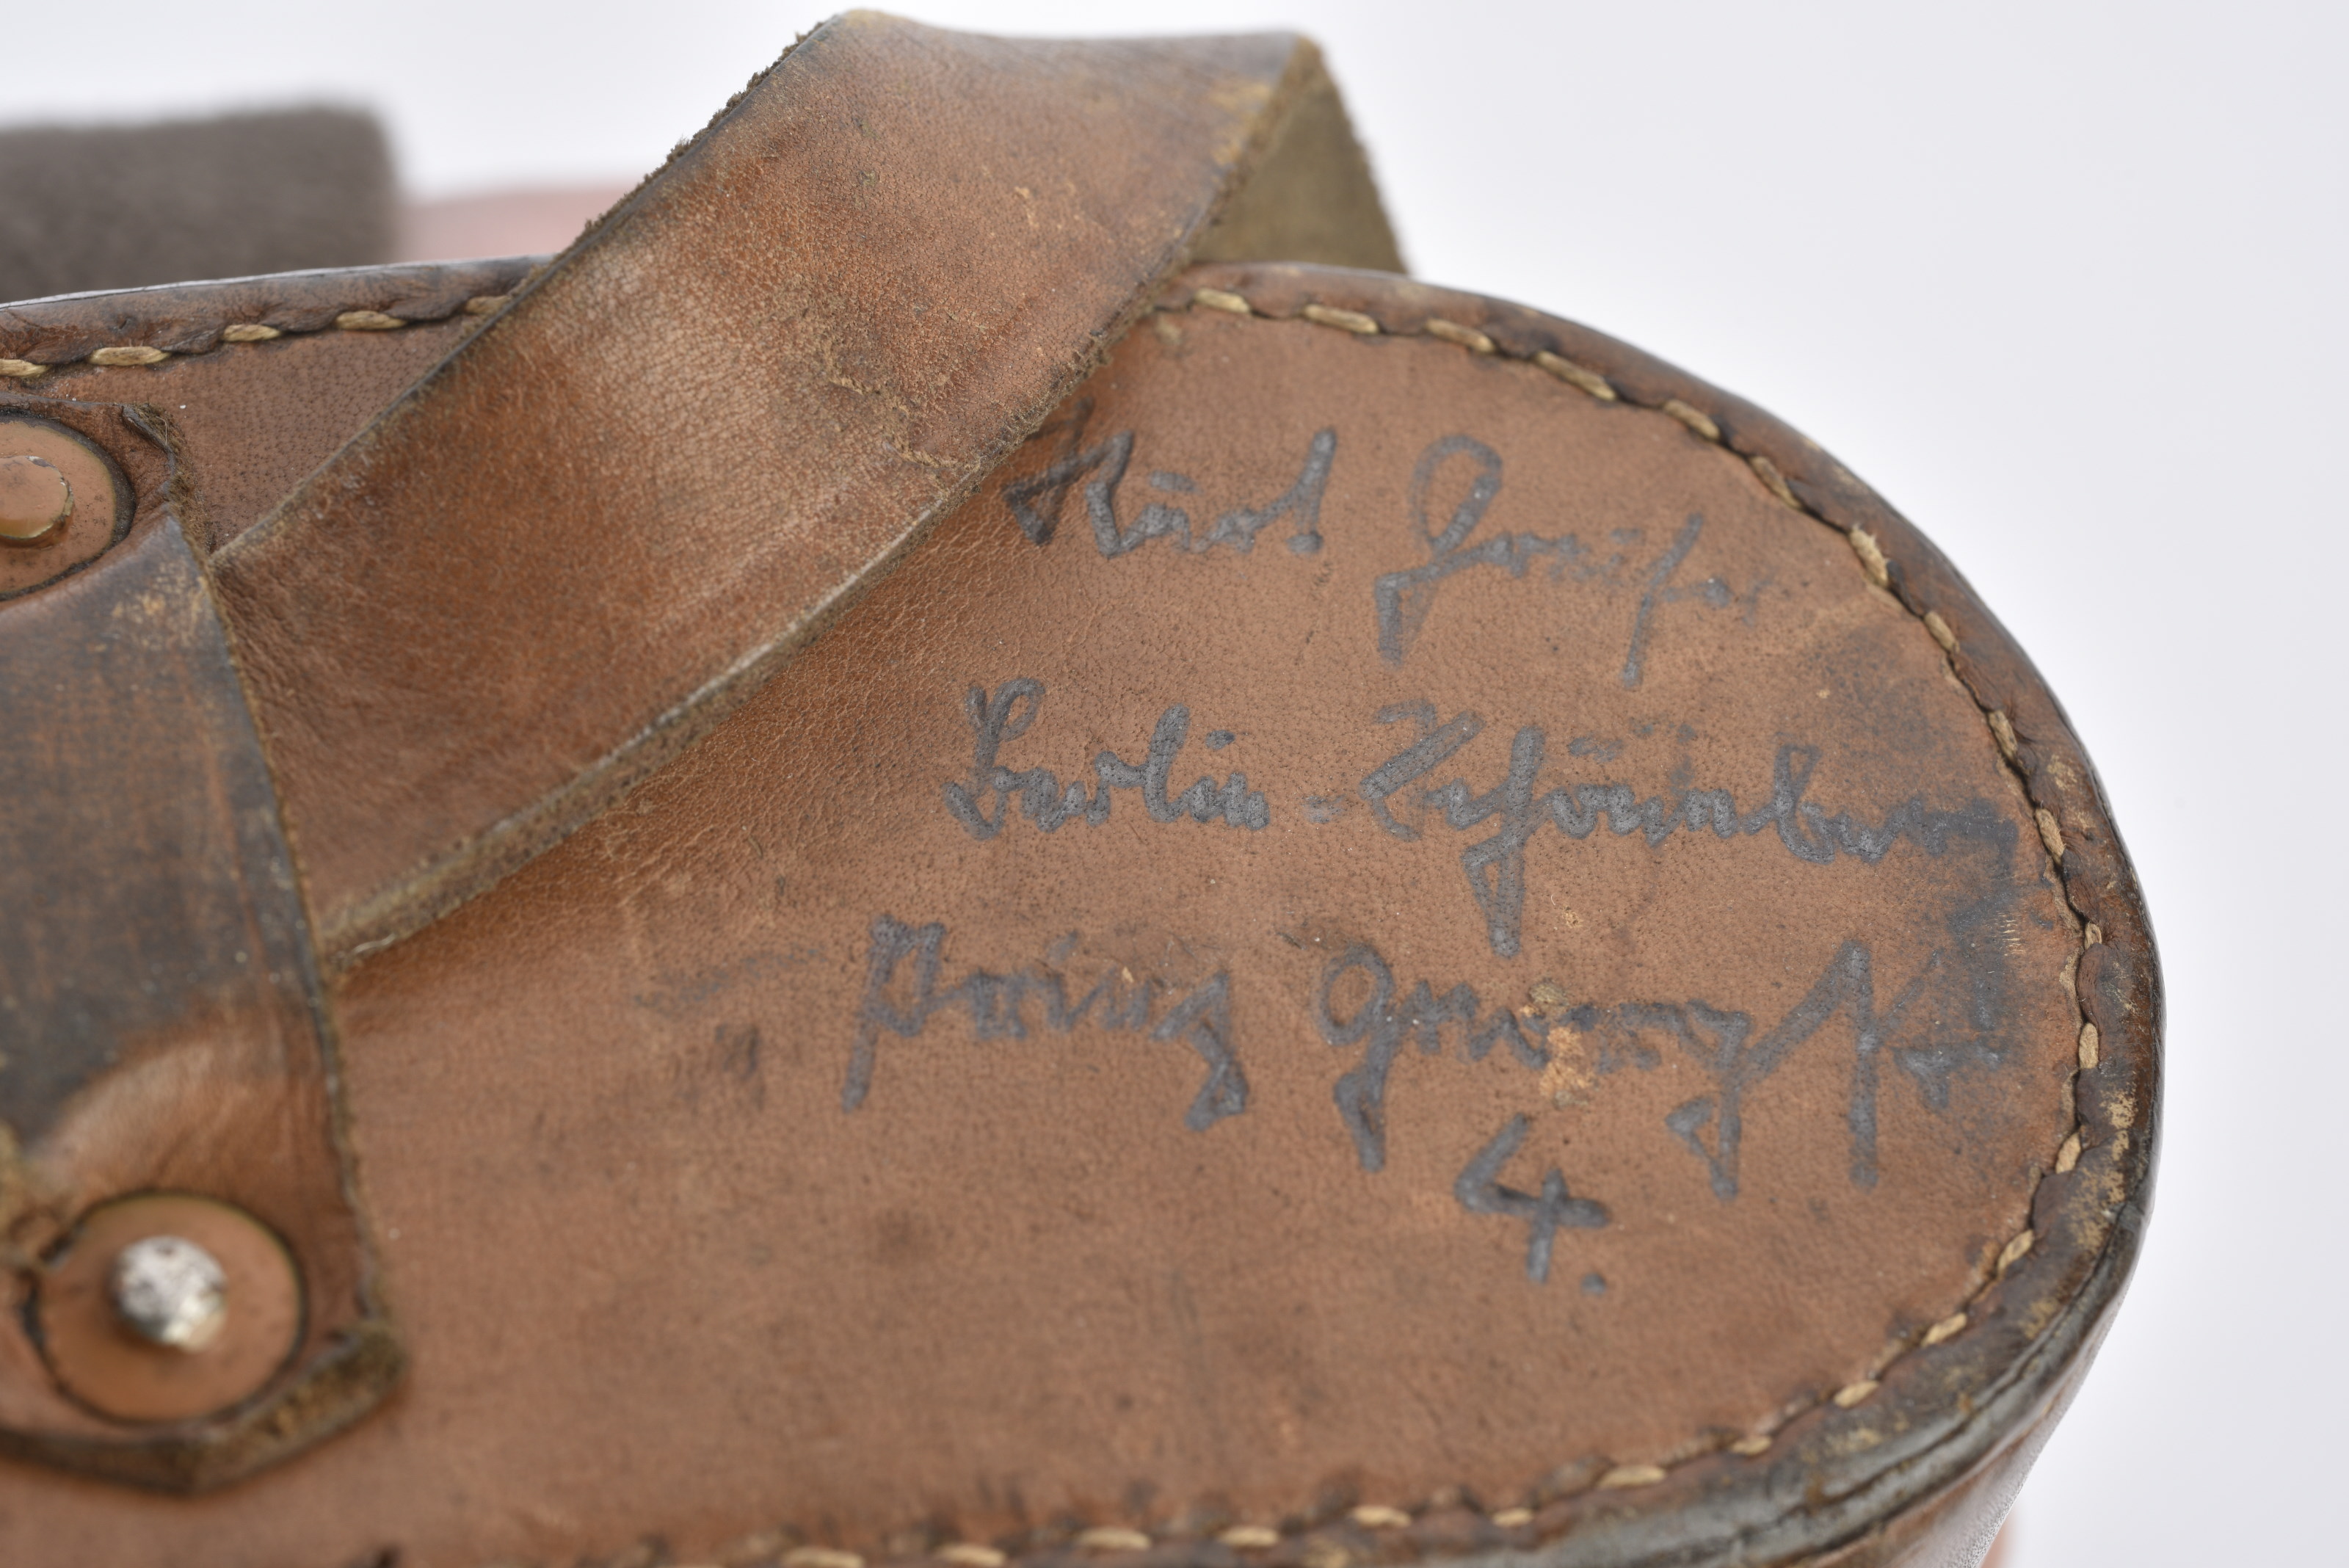 Kurt
Berlin-Schöneberg
Prinz Georg Str.
4.